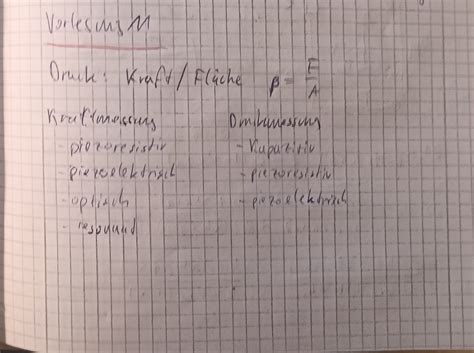 Vorlesung 11
Druck: Kraft / Fläche p = F/A
Kraftmessung
- piezoresistiv
- piezoelektrisch
- optisch
- resonant
Druckmessung
- Kapazitiv
- piezoresistiv
- piezoelektrisch